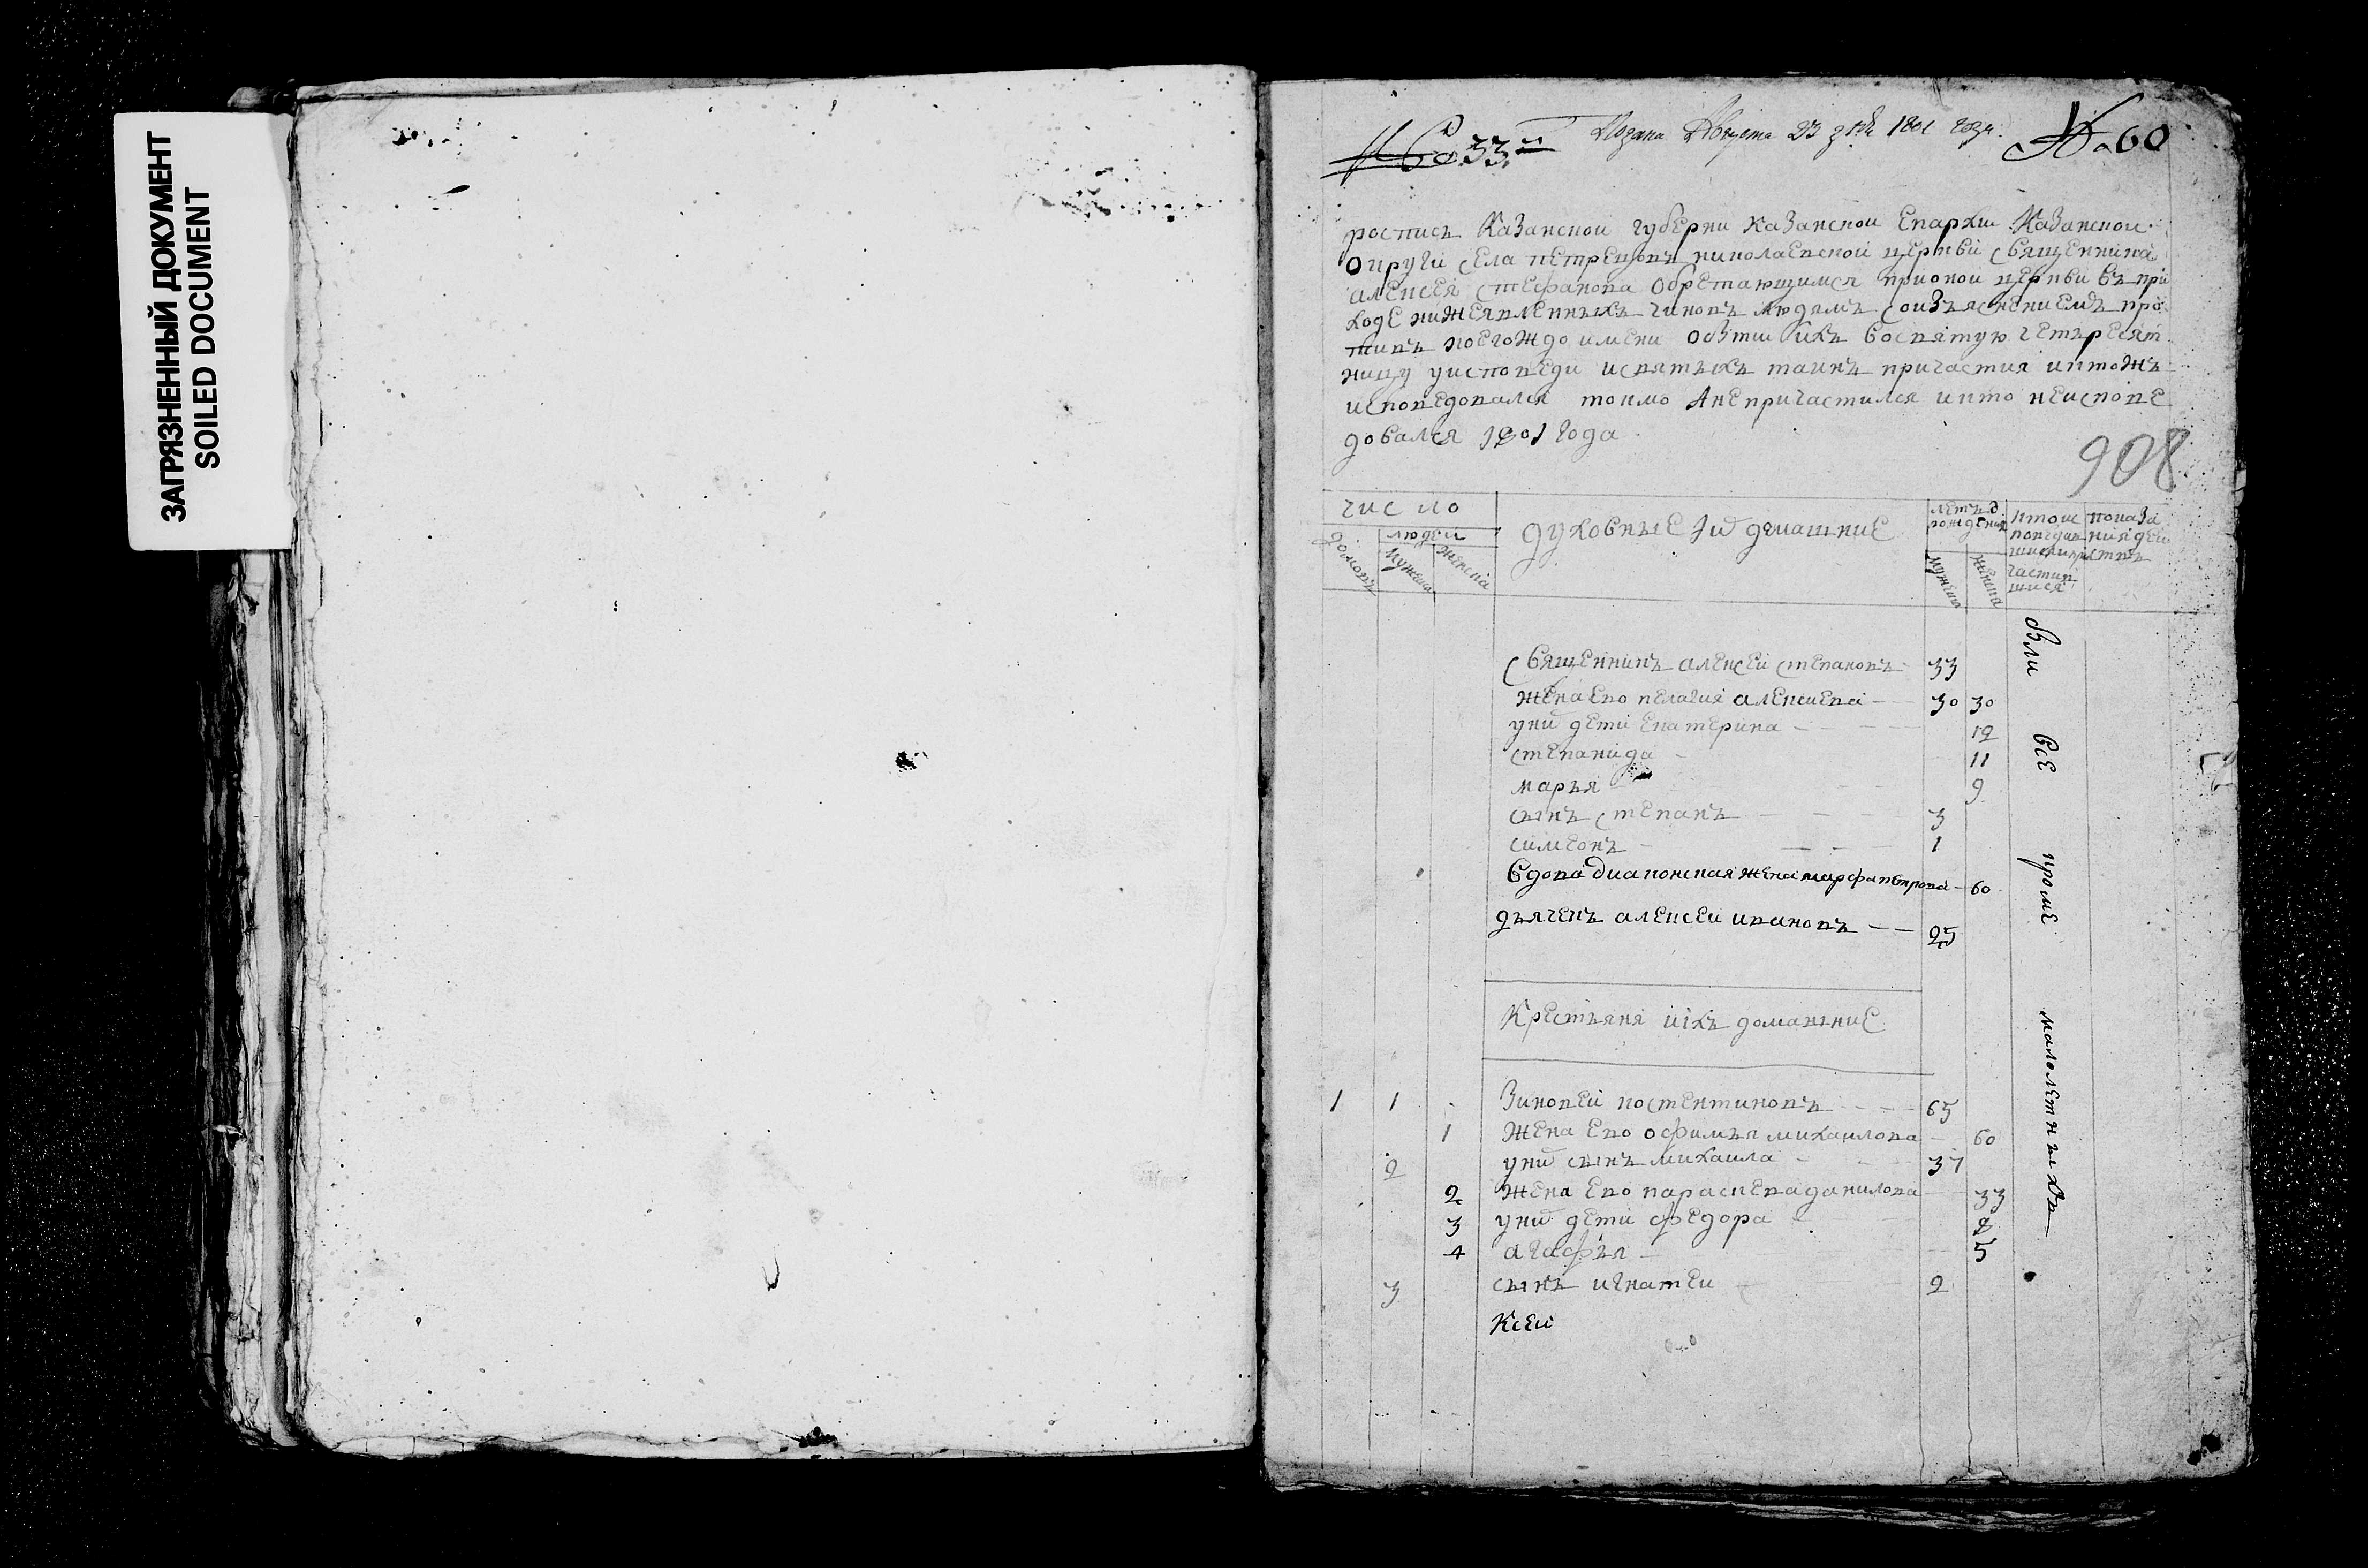 ЗАГРЯЗНЕННЫЙ ДОКУМЕНТ
SOILED DOCUMENT
№ 33й
Подана Августа 23 дня 1801 года.
№ 60
роспись Казанской губерни Казанской Епархии Казанской
округи села петрецовъ николаевской церкви священника
алексея стефанова обретающимся при оной церкви въ при
ходе нижеявленныхъ чиновъ людямъ со изъяснениемъ про
тивъ коегождо имени
у исповеди и святыхъ таинъ причастия и ктожъ
исповедовался токмо а не причастился и кто не испове
довался 1801 года
908
число
домовъ
людей
мужеска
женска
духовные и домашние
летъ
рождения
мужеска
женска
показа
Священникъ алексей степановъ 33
жена ево пелагия алексиева 30 30
у них дети екатерина 12
степанида 11
марья 9
сынъ степанъ 3
симеонъ 1
вдова диаконская жена марфа петрова 60
дьячекъ алексей ивановъ 25
были все кроме малолетныхъ
Крестьяня и ихъ домашние
1 1 Зиновей костентиновъ 65
1 жена ево офимья михаилова 60
2 у них сынъ михаила 37
2 жена ево парасkева данилова 33
3 у них дети федора 8
4 агафья 5
3 сынъ игнатей 2
Ксей